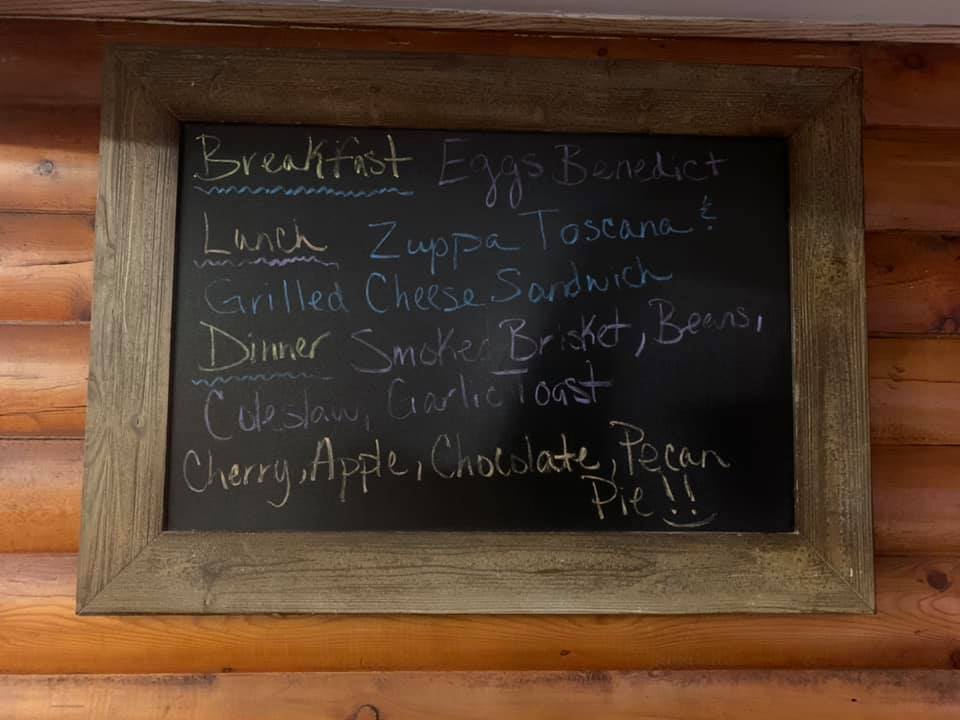 Breakfast Eggs Benedict
Lunch Zuppa Toscana &
Grilled Cheese Sandwich
Dinner Smoked Brisket, Beans,
Coleslaw, Garlic Toast
Cherry, Apple, Chocolate, Pecan
Pie!!